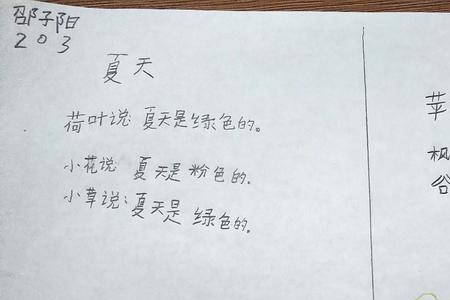 邵子阳
203
夏天
荷叶说:夏天是绿色的。
小花说:夏天是粉色的。
小草说:夏天是绿色的。
苹
枫
谷